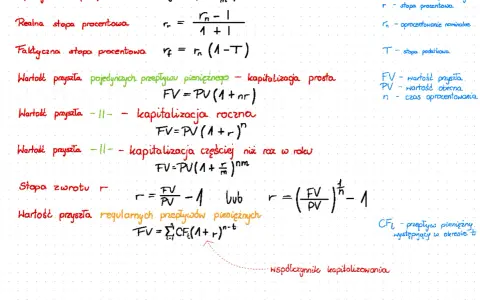 r - stopa procentowa
Realna stopa procentowa rᵣ = (rₙ - I) / (1 + I)
rₙ - oprocentowanie nominalne
Faktyczna stopa procentowa r_f = rₙ (1-T)
T - stopa podatkowa
Wartość przyszła pojedynczych przepływów pieniężnego - kapitalizacja prosta
FV - wartość przyszła
PV - wartość obecna
n - czas oprocentowania
FV = PV (1 + nr)
Wartość przyszła -||- - kapitalizacja roczna
FV = PV (1 + r)ⁿ
Wartość przyszła -||- - kapitalizacja częściej niż raz w roku
FV = PV (1 + r/m)ⁿᵐ
Stopa zwrotu r
r = FV/PV - 1 lub r = (FV/PV)^(1/n) - 1
Wartość przyszła regularnych przepływów pieniężnych
FV = Σ CFₜ (1 + r)ⁿ⁻ᵗ
CFₜ - przepływ pieniężny
występujący w okresie t
współczynnik kapitalizowania